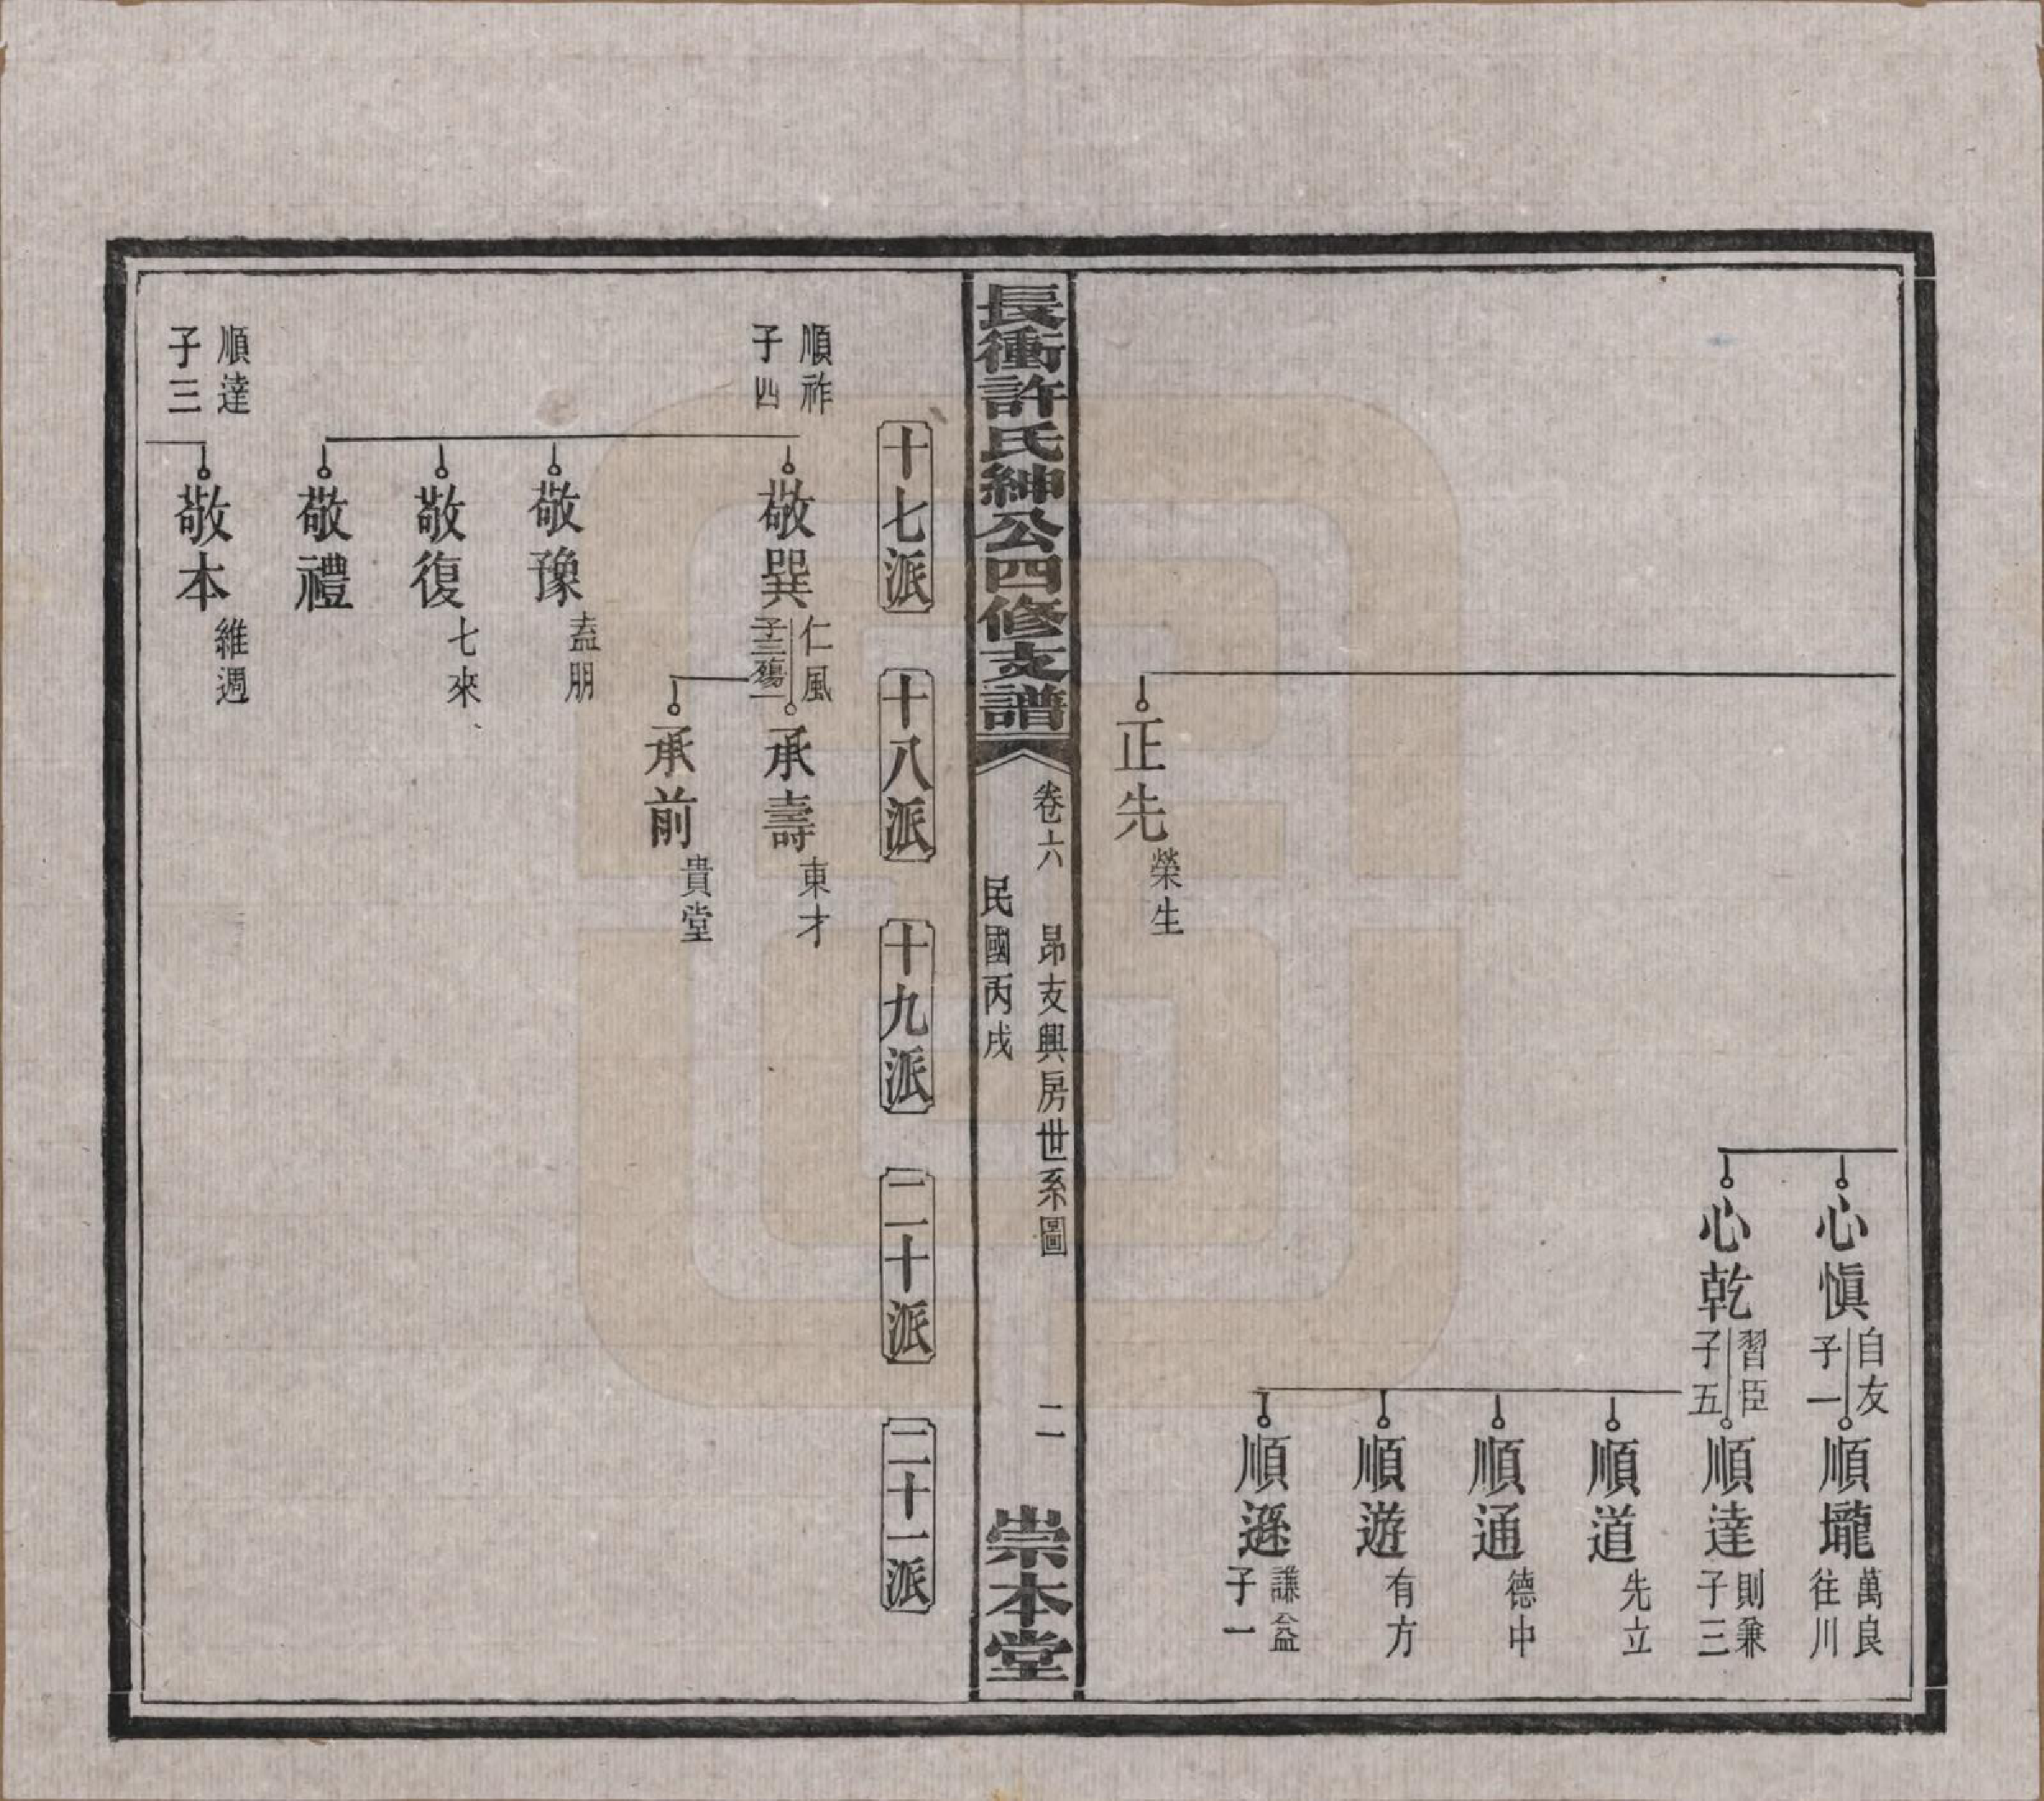 心慎
自友
子一
順壠
萬良
往川
心乾
習臣
子五
順達
則兼
子三
順道
先立
順通
德中
順遊
有方
順遜
謙益
子一
正先
榮生
長衝許氏紳公四修支譜
卷六 昻支興房世系圖 二
民國丙戌
崇本堂
十七派
十八派
十九派
二十派
二十一派
順祚
子四
敬巽
仁風
子三殤一
承壽
東才
承前
貴堂
敬豫
盍朋
敬復
七來
敬禮
順達
子三
敬本
維週